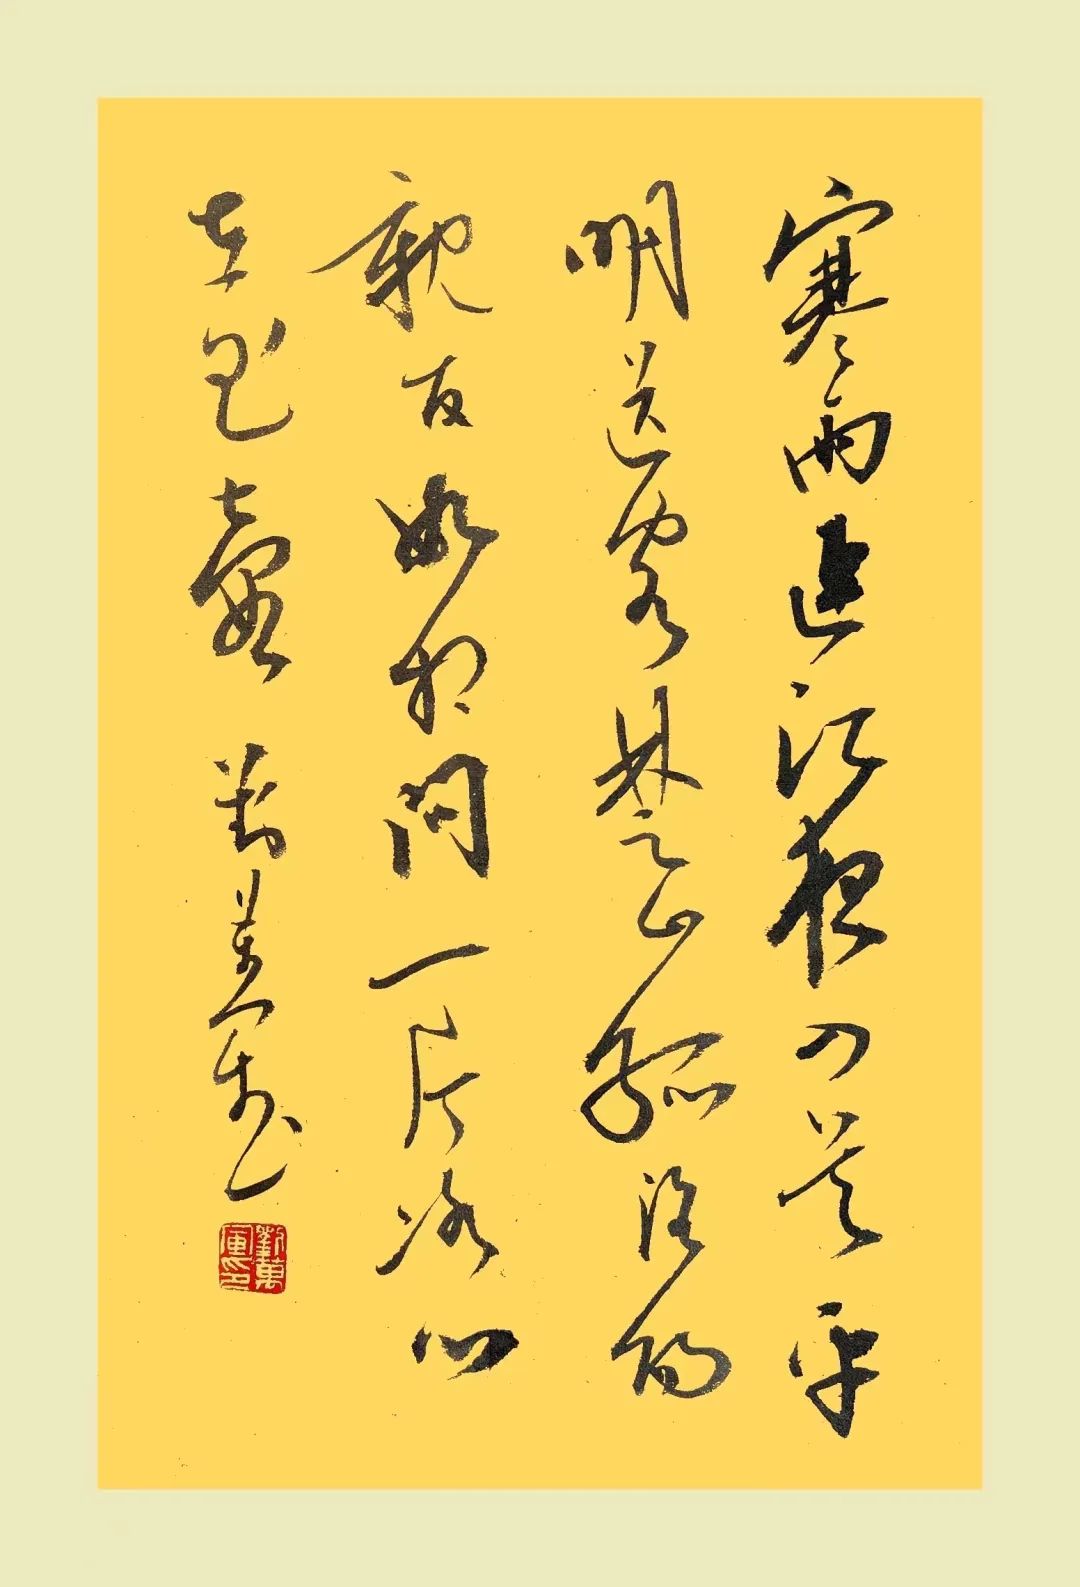 寒雨連江夜入吴平
明送客楚山孤洛陽
親友如相問一片冰心
在玉壺 劉萬軍
劉萬軍印